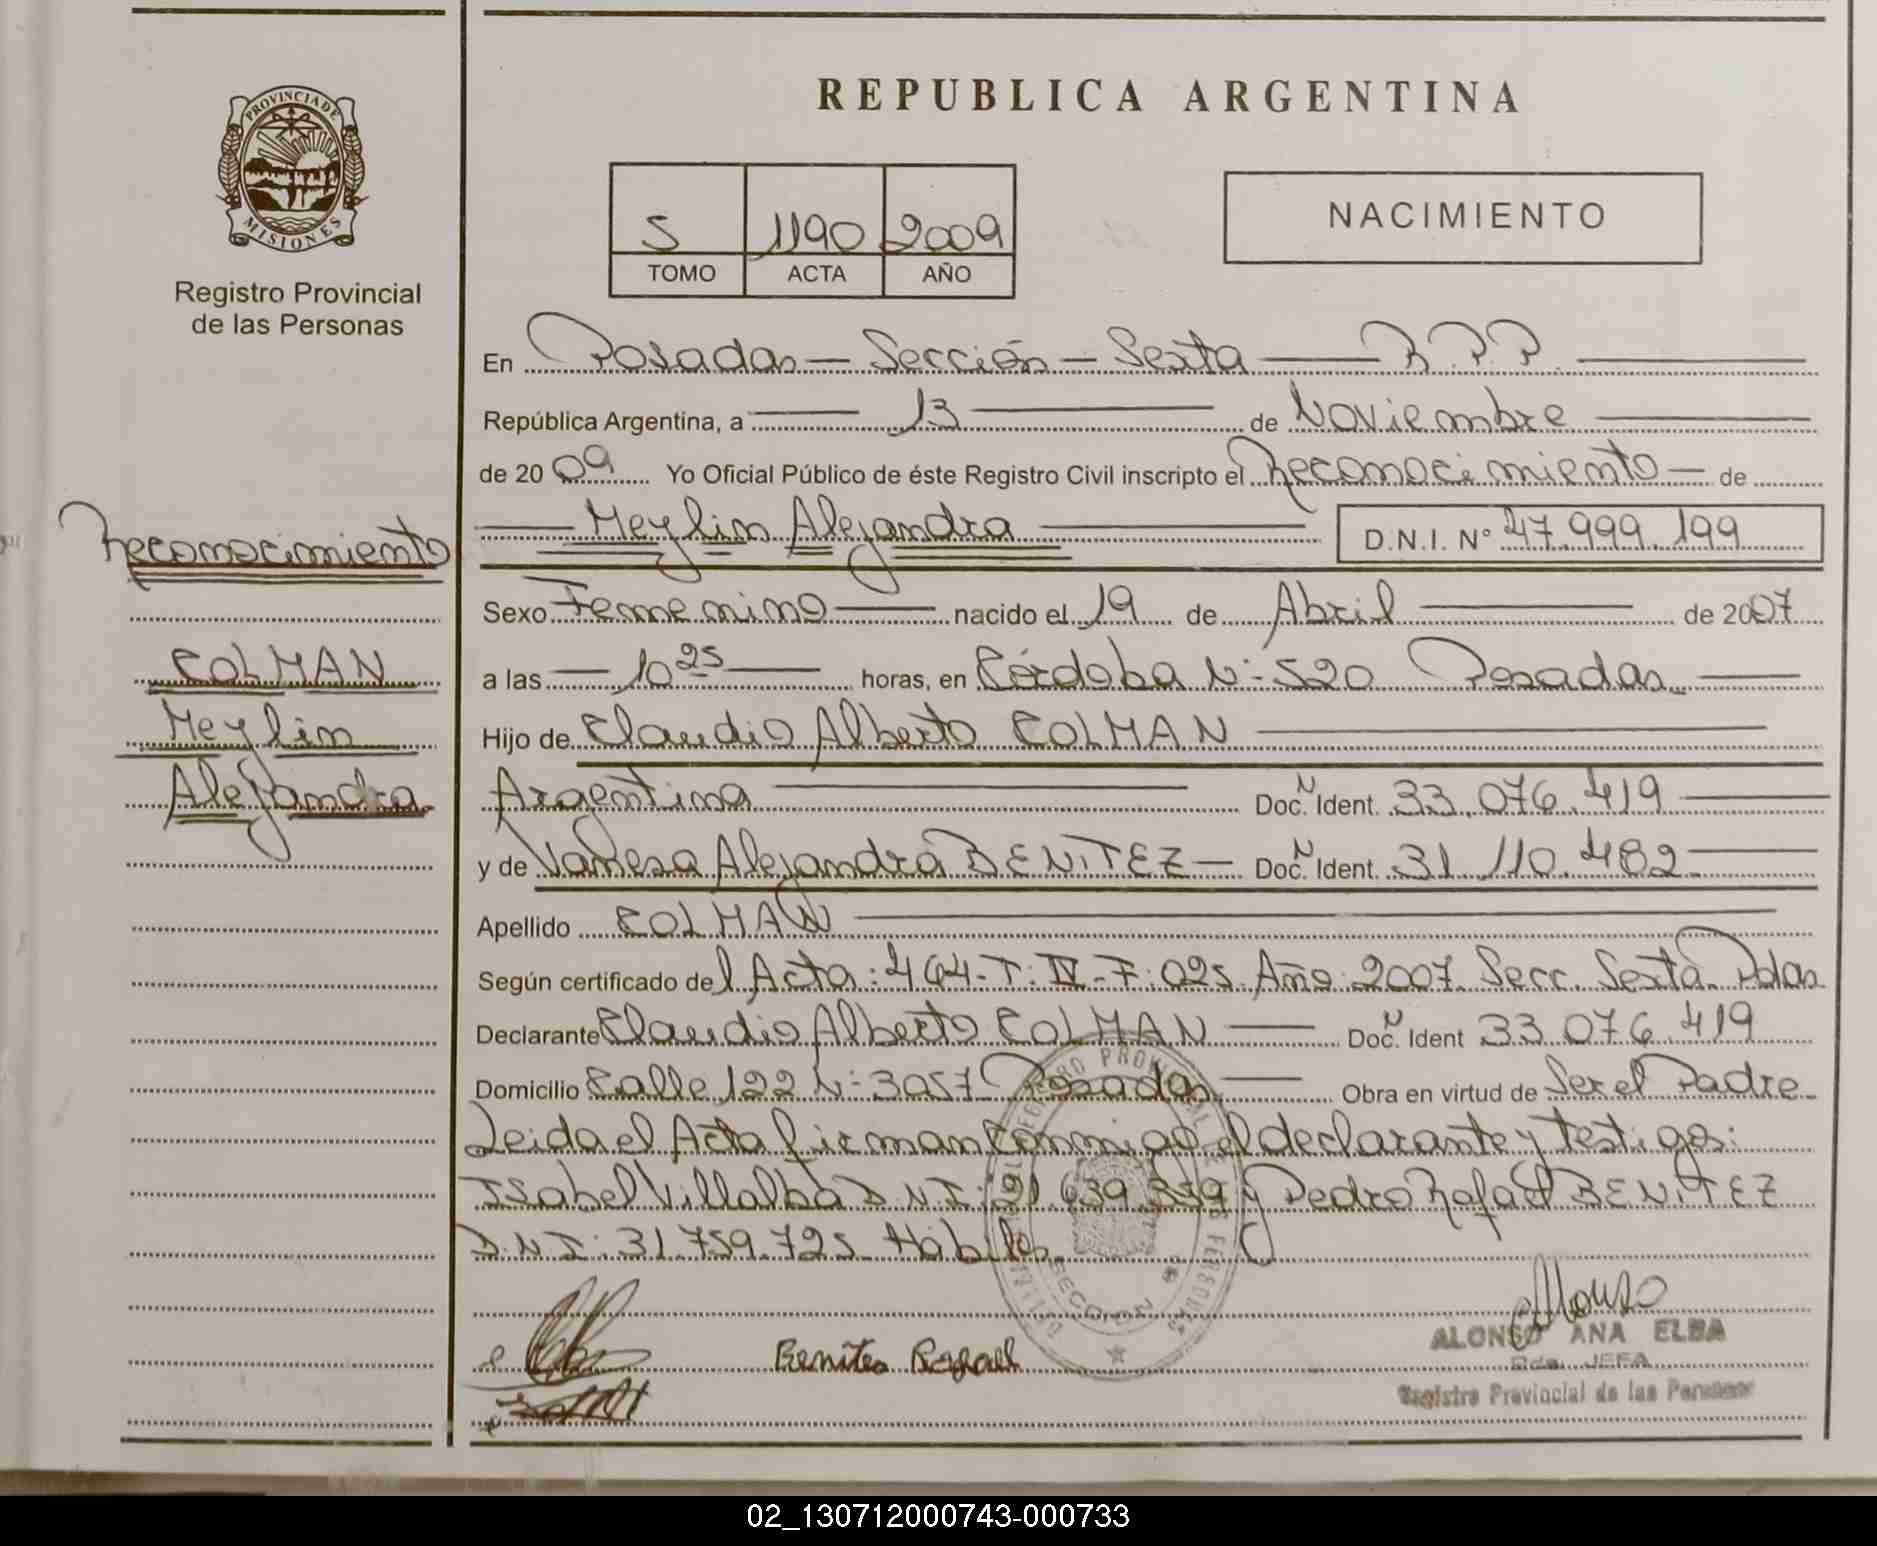 REPUBLICA ARGENTINA
PROVINCIA DE
MISIONES
Registro Provincial
de las Personas
5 1190 2009
TOMO ACTA AÑO
NACIMIENTO
En Posadas — Sección — Sexta — R.P.P.
República Argentina, a 13 de Noviembre
de 2009 Yo Oficial Público de éste Registro Civil inscripto el Reconocimiento de
Meylin Alejandra D.N.I. Nº 47.999.199
Reconocimiento
Sexo Femenino nacido el 19 de Abril de 2007
COLMAN
a las 10 25 horas, en Córdoba Nº 520 Posadas
Meylin
Hijo de Claudio Alberto COLMAN
Alejandra
Argentina Doc. N Ident. 33.076.419
y de Vanesa Alejandra BENITEZ — Doc. N Ident. 31.110.482
Apellido COLMAN
Según certificado del Acta: 464-T: IV-F: 025. Año: 2007. Secc. Sexta. Pdas
Declarante Claudio Alberto COLMAN Doc. N Ident 33.076.419
Domicilio Calle 122 Nº 3057 Posadas. Obra en virtud de Ser el Padre
Leida el Acta firman conmigo el declarante y testigos:
Isabel Villalba D.N.I: 21.639.339 y Pedro Rafael BENITEZ
D.N.I: 31.759.725 Hábiles.
Benites Rafael
Alonso
ALONSO ANA ELBA
JEFA
Registro Provincial de las Personas
SECCION
02_130712000743-000733